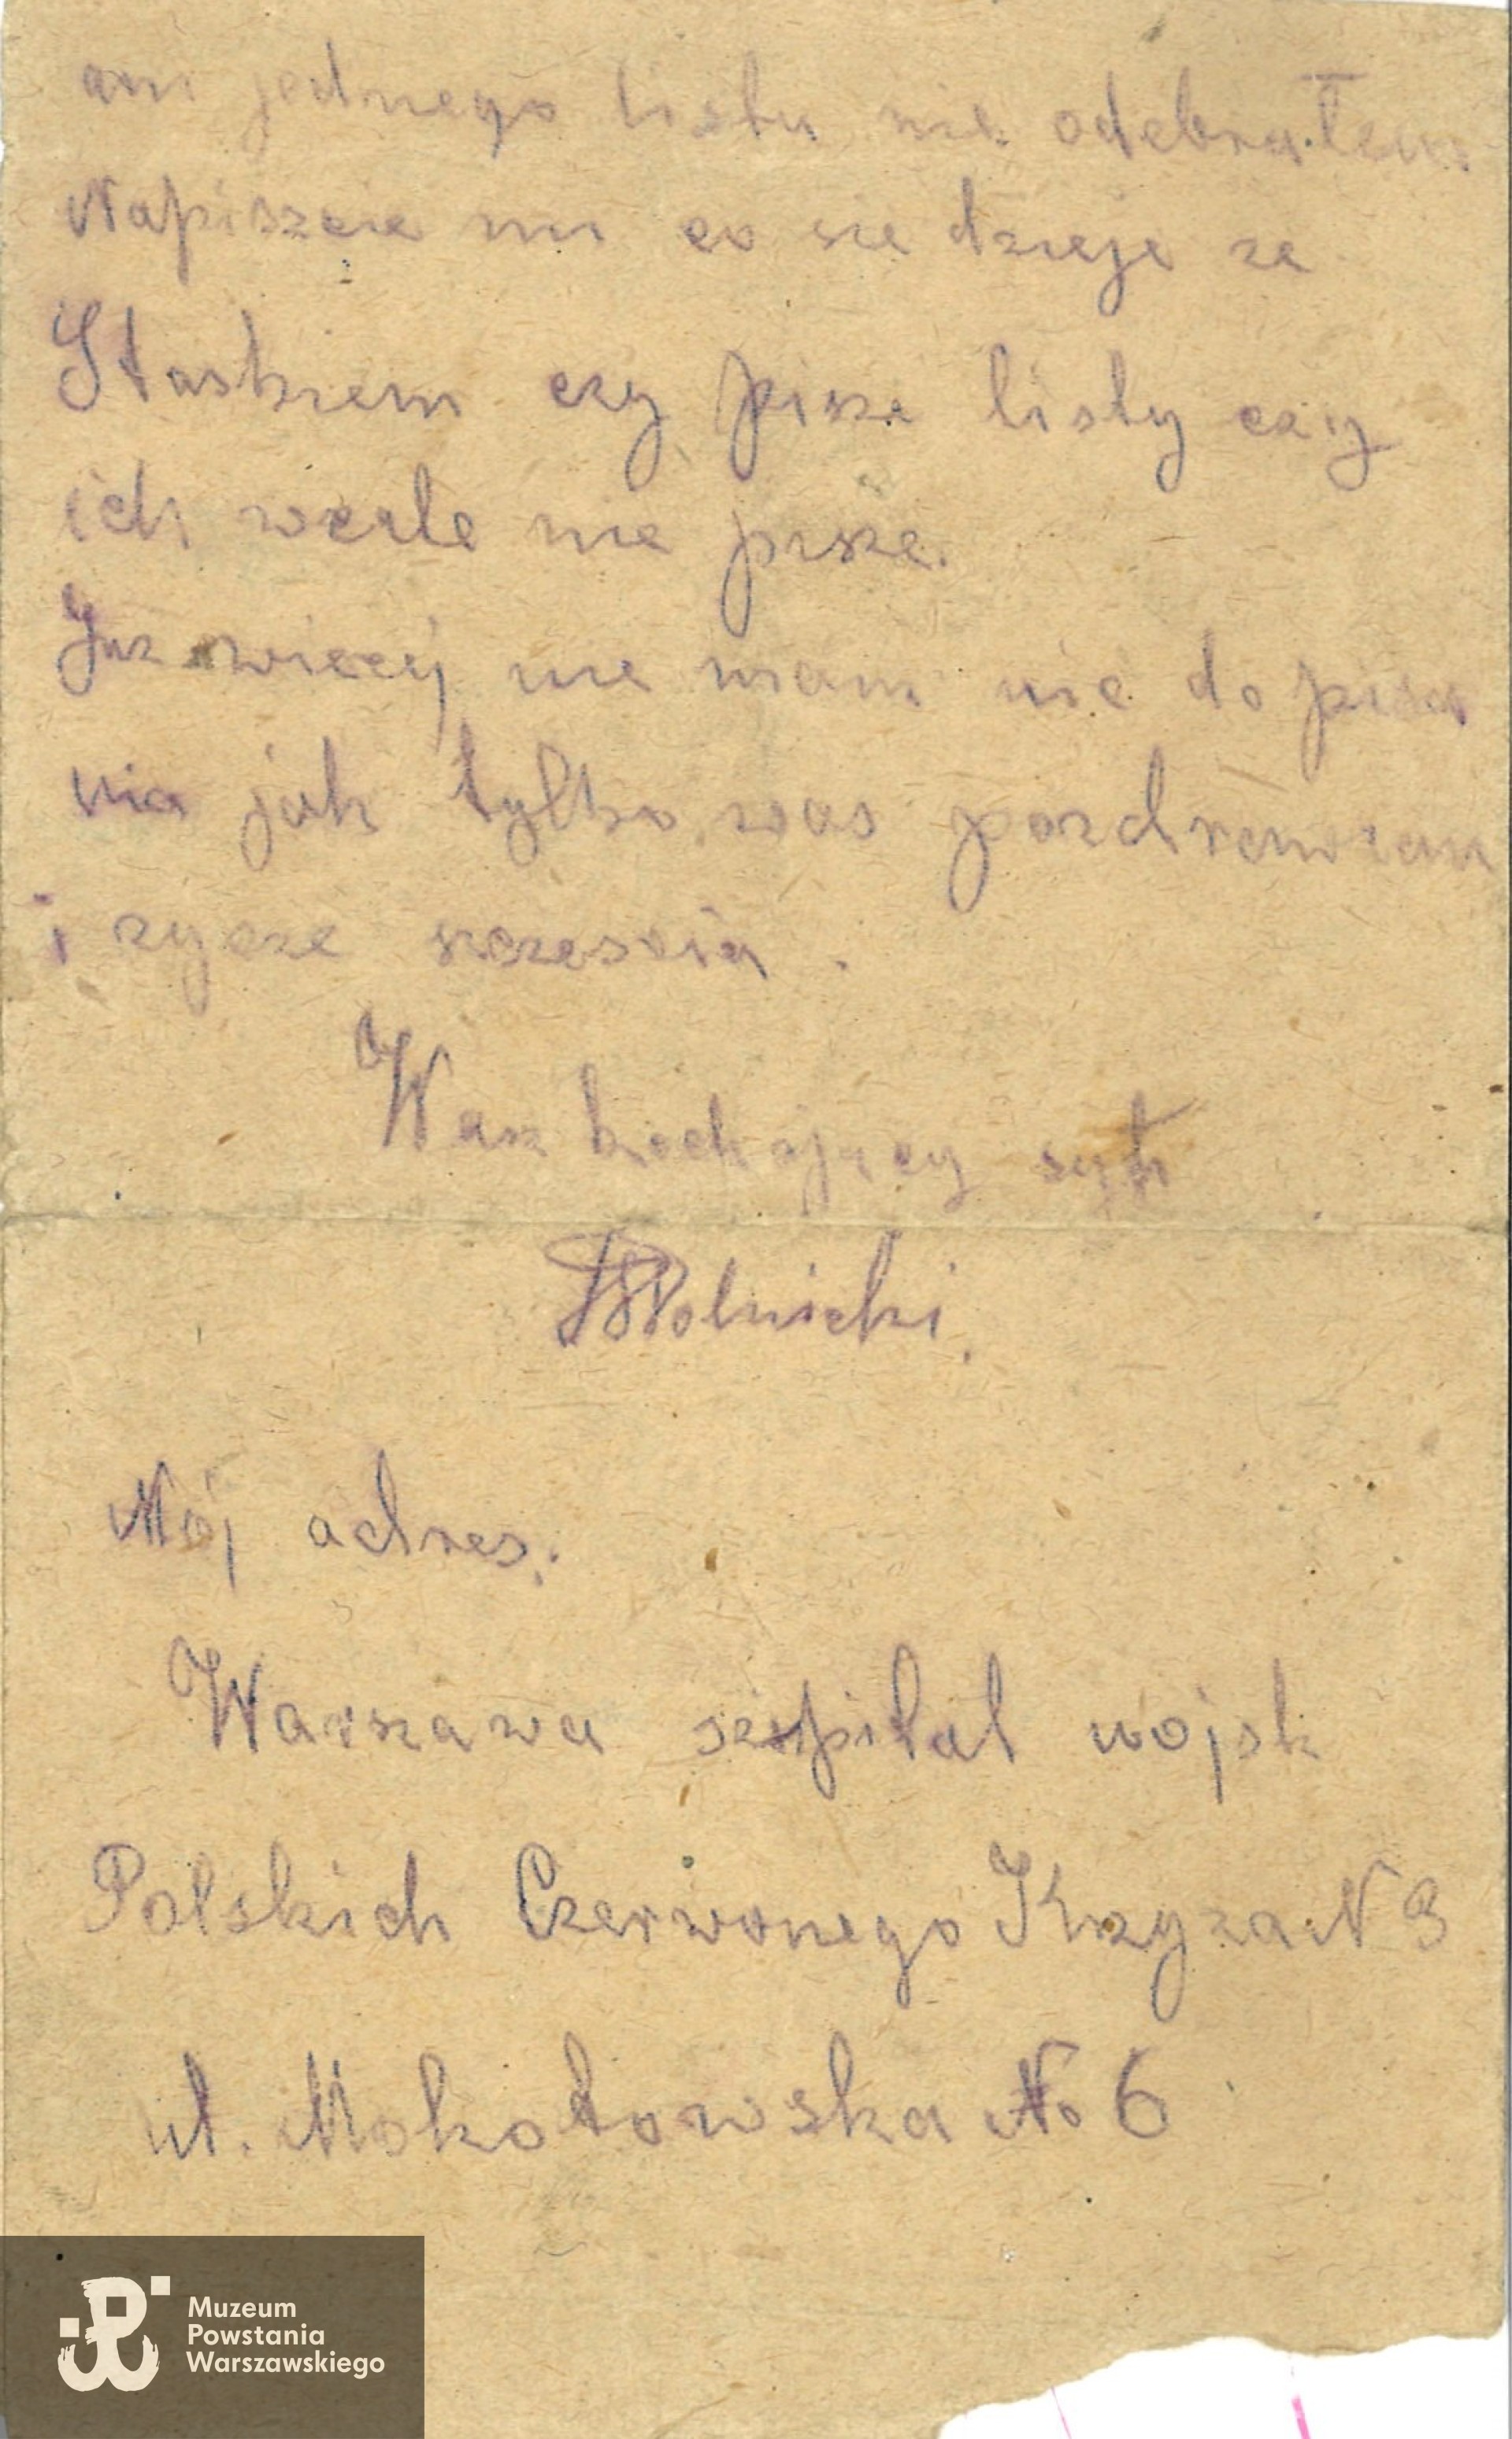 ani jednego listu nie odebrałem
Napiszcie mi co sie dzieje ze
Staskiem czy pisze listy czy
ich wcale nie pisze.
Juz wiecej nie mam nic do pisa
nia jak tylko was pozdrawiam
i zycze szczescia.
Wasz kochający syn
Wolnicki.
Mój adres:
Warszawa szpital wojsk
Polskich Czerwonego Krzyza N 3
ul. Mokotowska No 6
Muzeum
Powstania
Warszawskiego